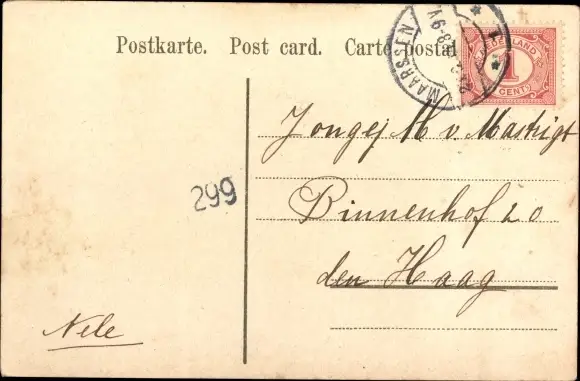 Postkarte. Post card. Carte postal
MAARSSEN
NEDERLAND
1
CENT
Jongej M v. Mastrigt
299
Binnenhof 20
den Haag
Nele